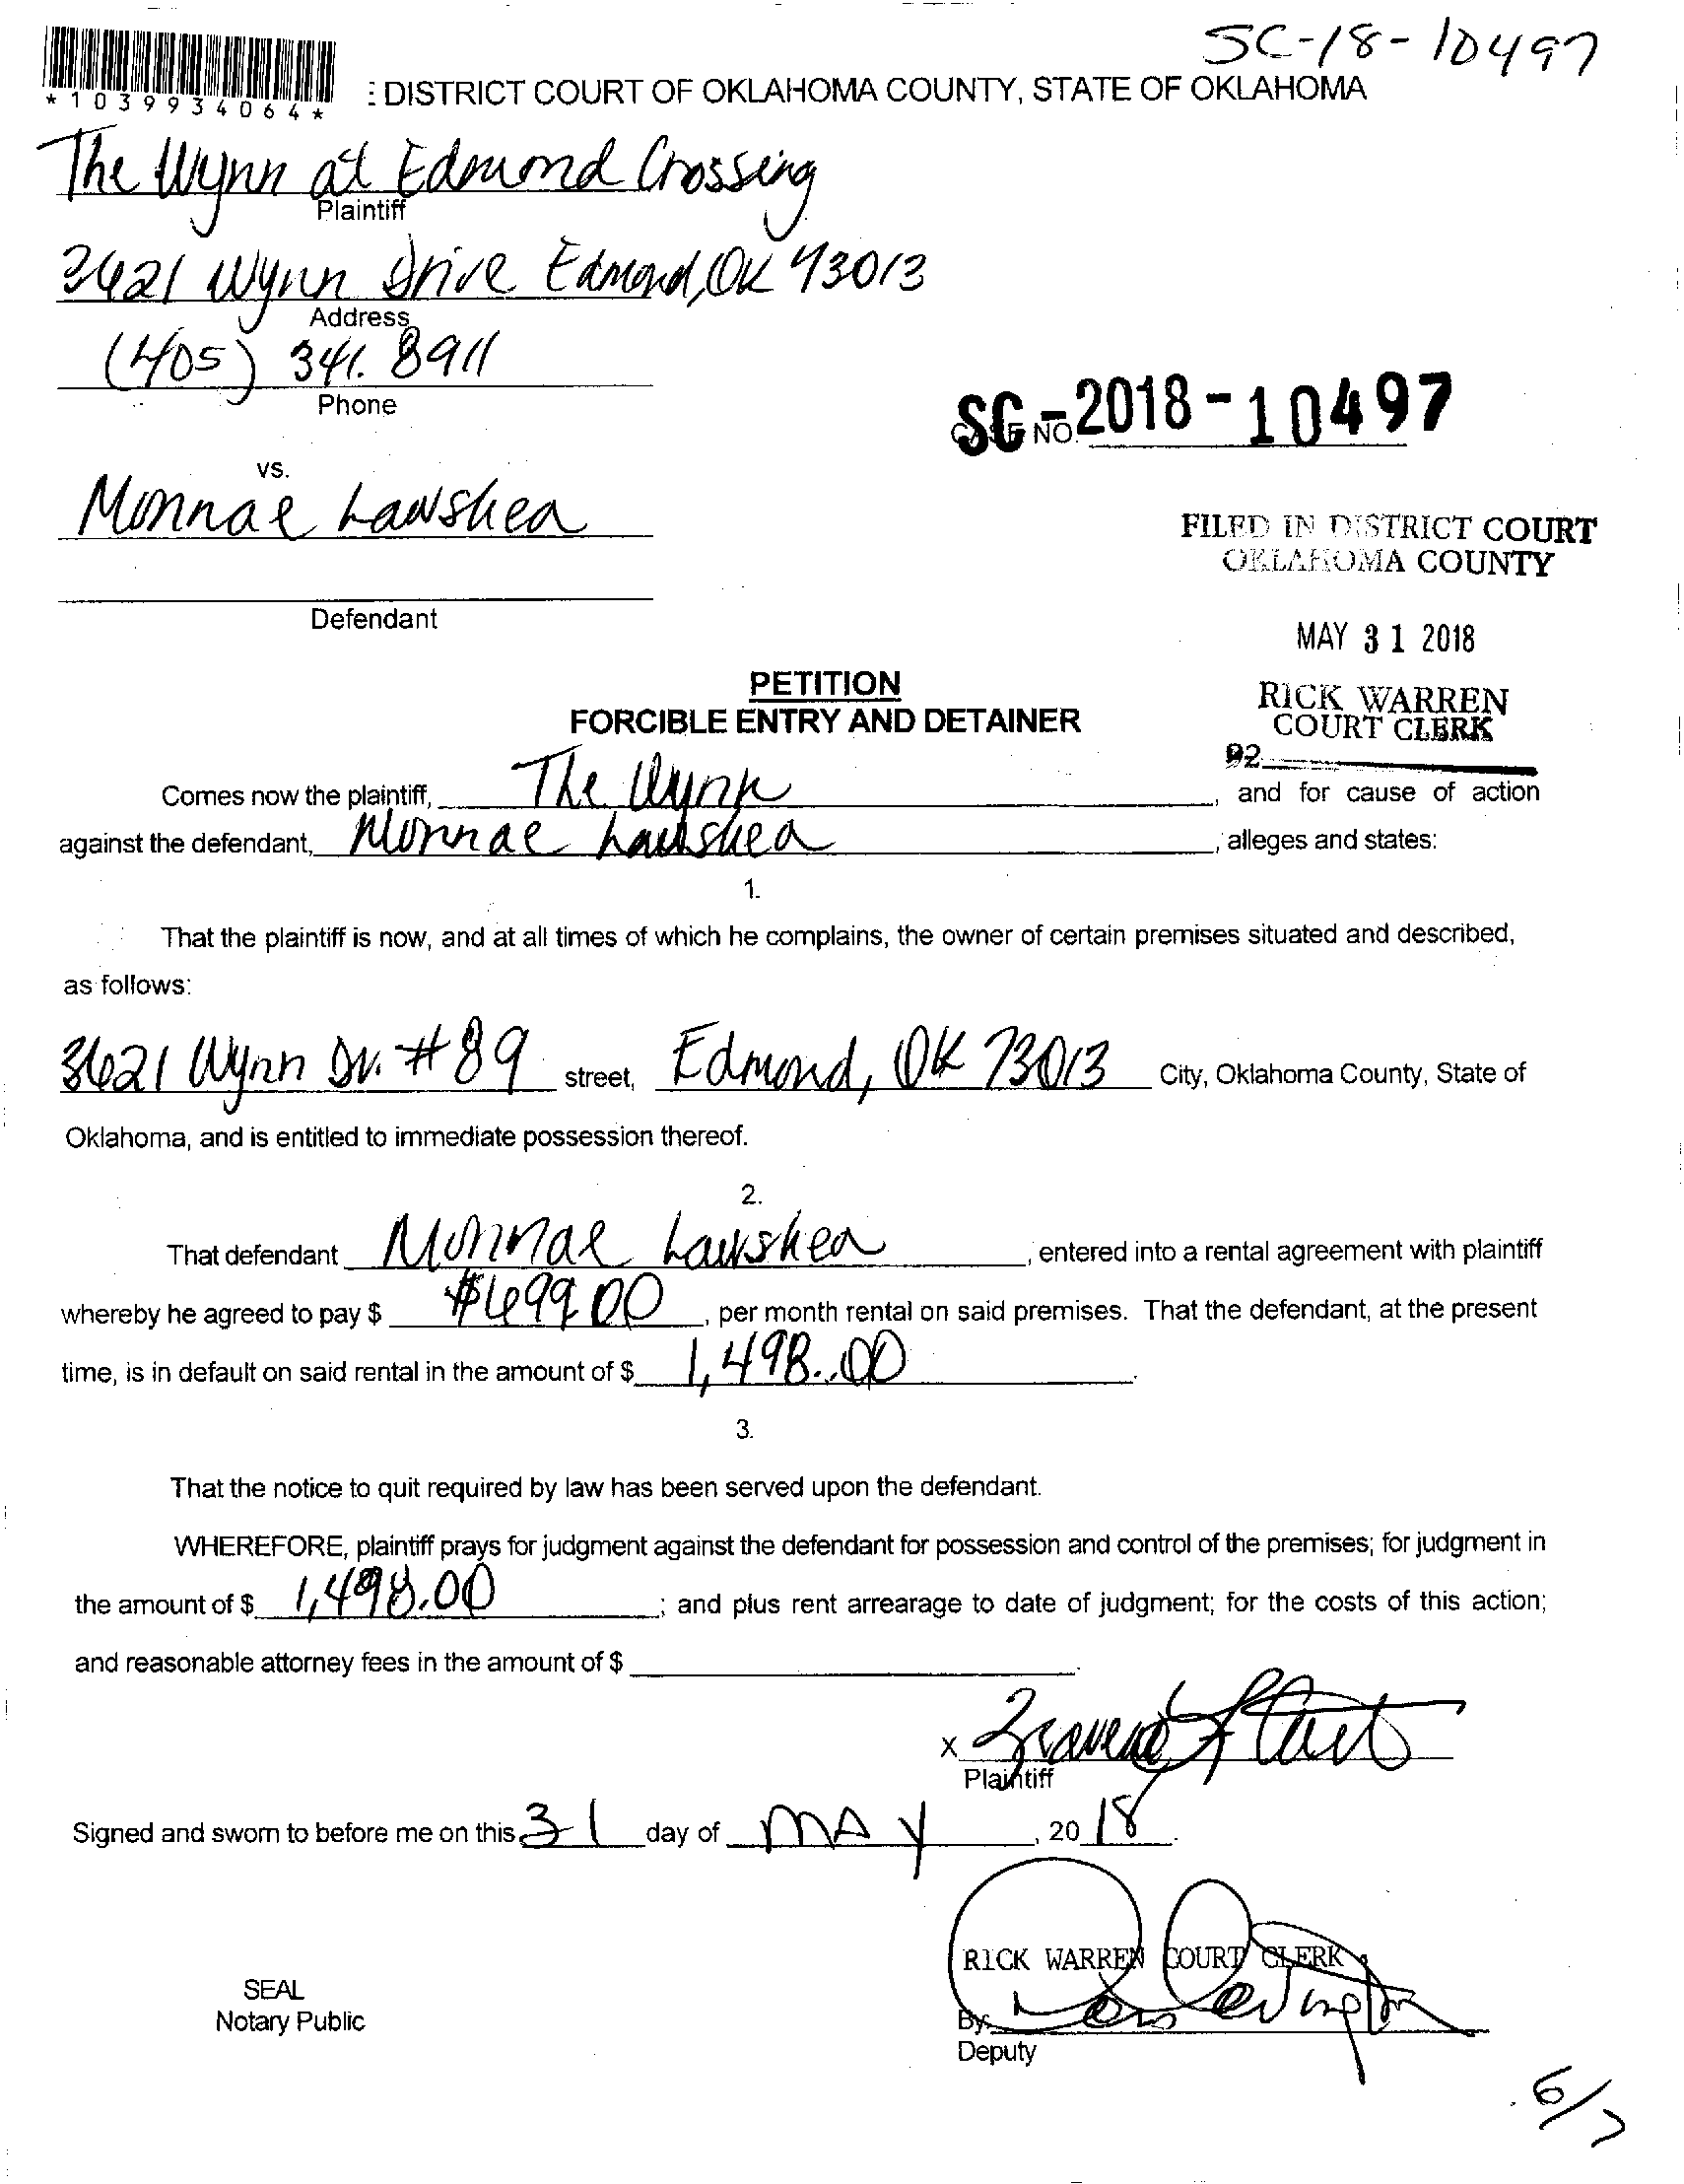 SC-18-10497
*1039934064*
: DISTRICT COURT OF OKLAHOMA COUNTY, STATE OF OKLAHOMA
The Wynn at Edmond Crossing
Plaintiff
3621 Wynn Drive Edmond, OK 73013
Address
(405) 341. 8911
Phone
SC-2018-10497
NO.
vs.
Monnae Lawshea
FILED IN DISTRICT COURT
OKLAHOMA COUNTY
Defendant
MAY 31 2018
PETITION
RICK WARREN
FORCIBLE ENTRY AND DETAINER
COURT CLERK
92
Comes now the plaintiff, The Wynn, and for cause of action
against the defendant, Monnae Lawshea, alleges and states:
1.
That the plaintiff is now, and at all times of which he complains, the owner of certain premises situated and described,
as follows:
3621 Wynn Dr. #89 street, Edmond, OK 73013 City, Oklahoma County, State of
Oklahoma, and is entitled to immediate possession thereof.
2.
That defendant Monnae Lawshea, entered into a rental agreement with plaintiff
whereby he agreed to pay $ $699.00, per month rental on said premises. That the defendant, at the present
time, is in default on said rental in the amount of $ 1,498.00.
3.
That the notice to quit required by law has been served upon the defendant.
WHEREFORE, plaintiff prays for judgment against the defendant for possession and control of the premises; for judgment in
the amount of $ 1,498.00; and plus rent arrearage to date of judgment; for the costs of this action;
and reasonable attorney fees in the amount of $
x
Plaintiff
Signed and sworn to before me on this 31 day of MAY, 2018.
RICK WARREN COURT CLERK
SEAL
Notary Public
By
Deputy
6/7